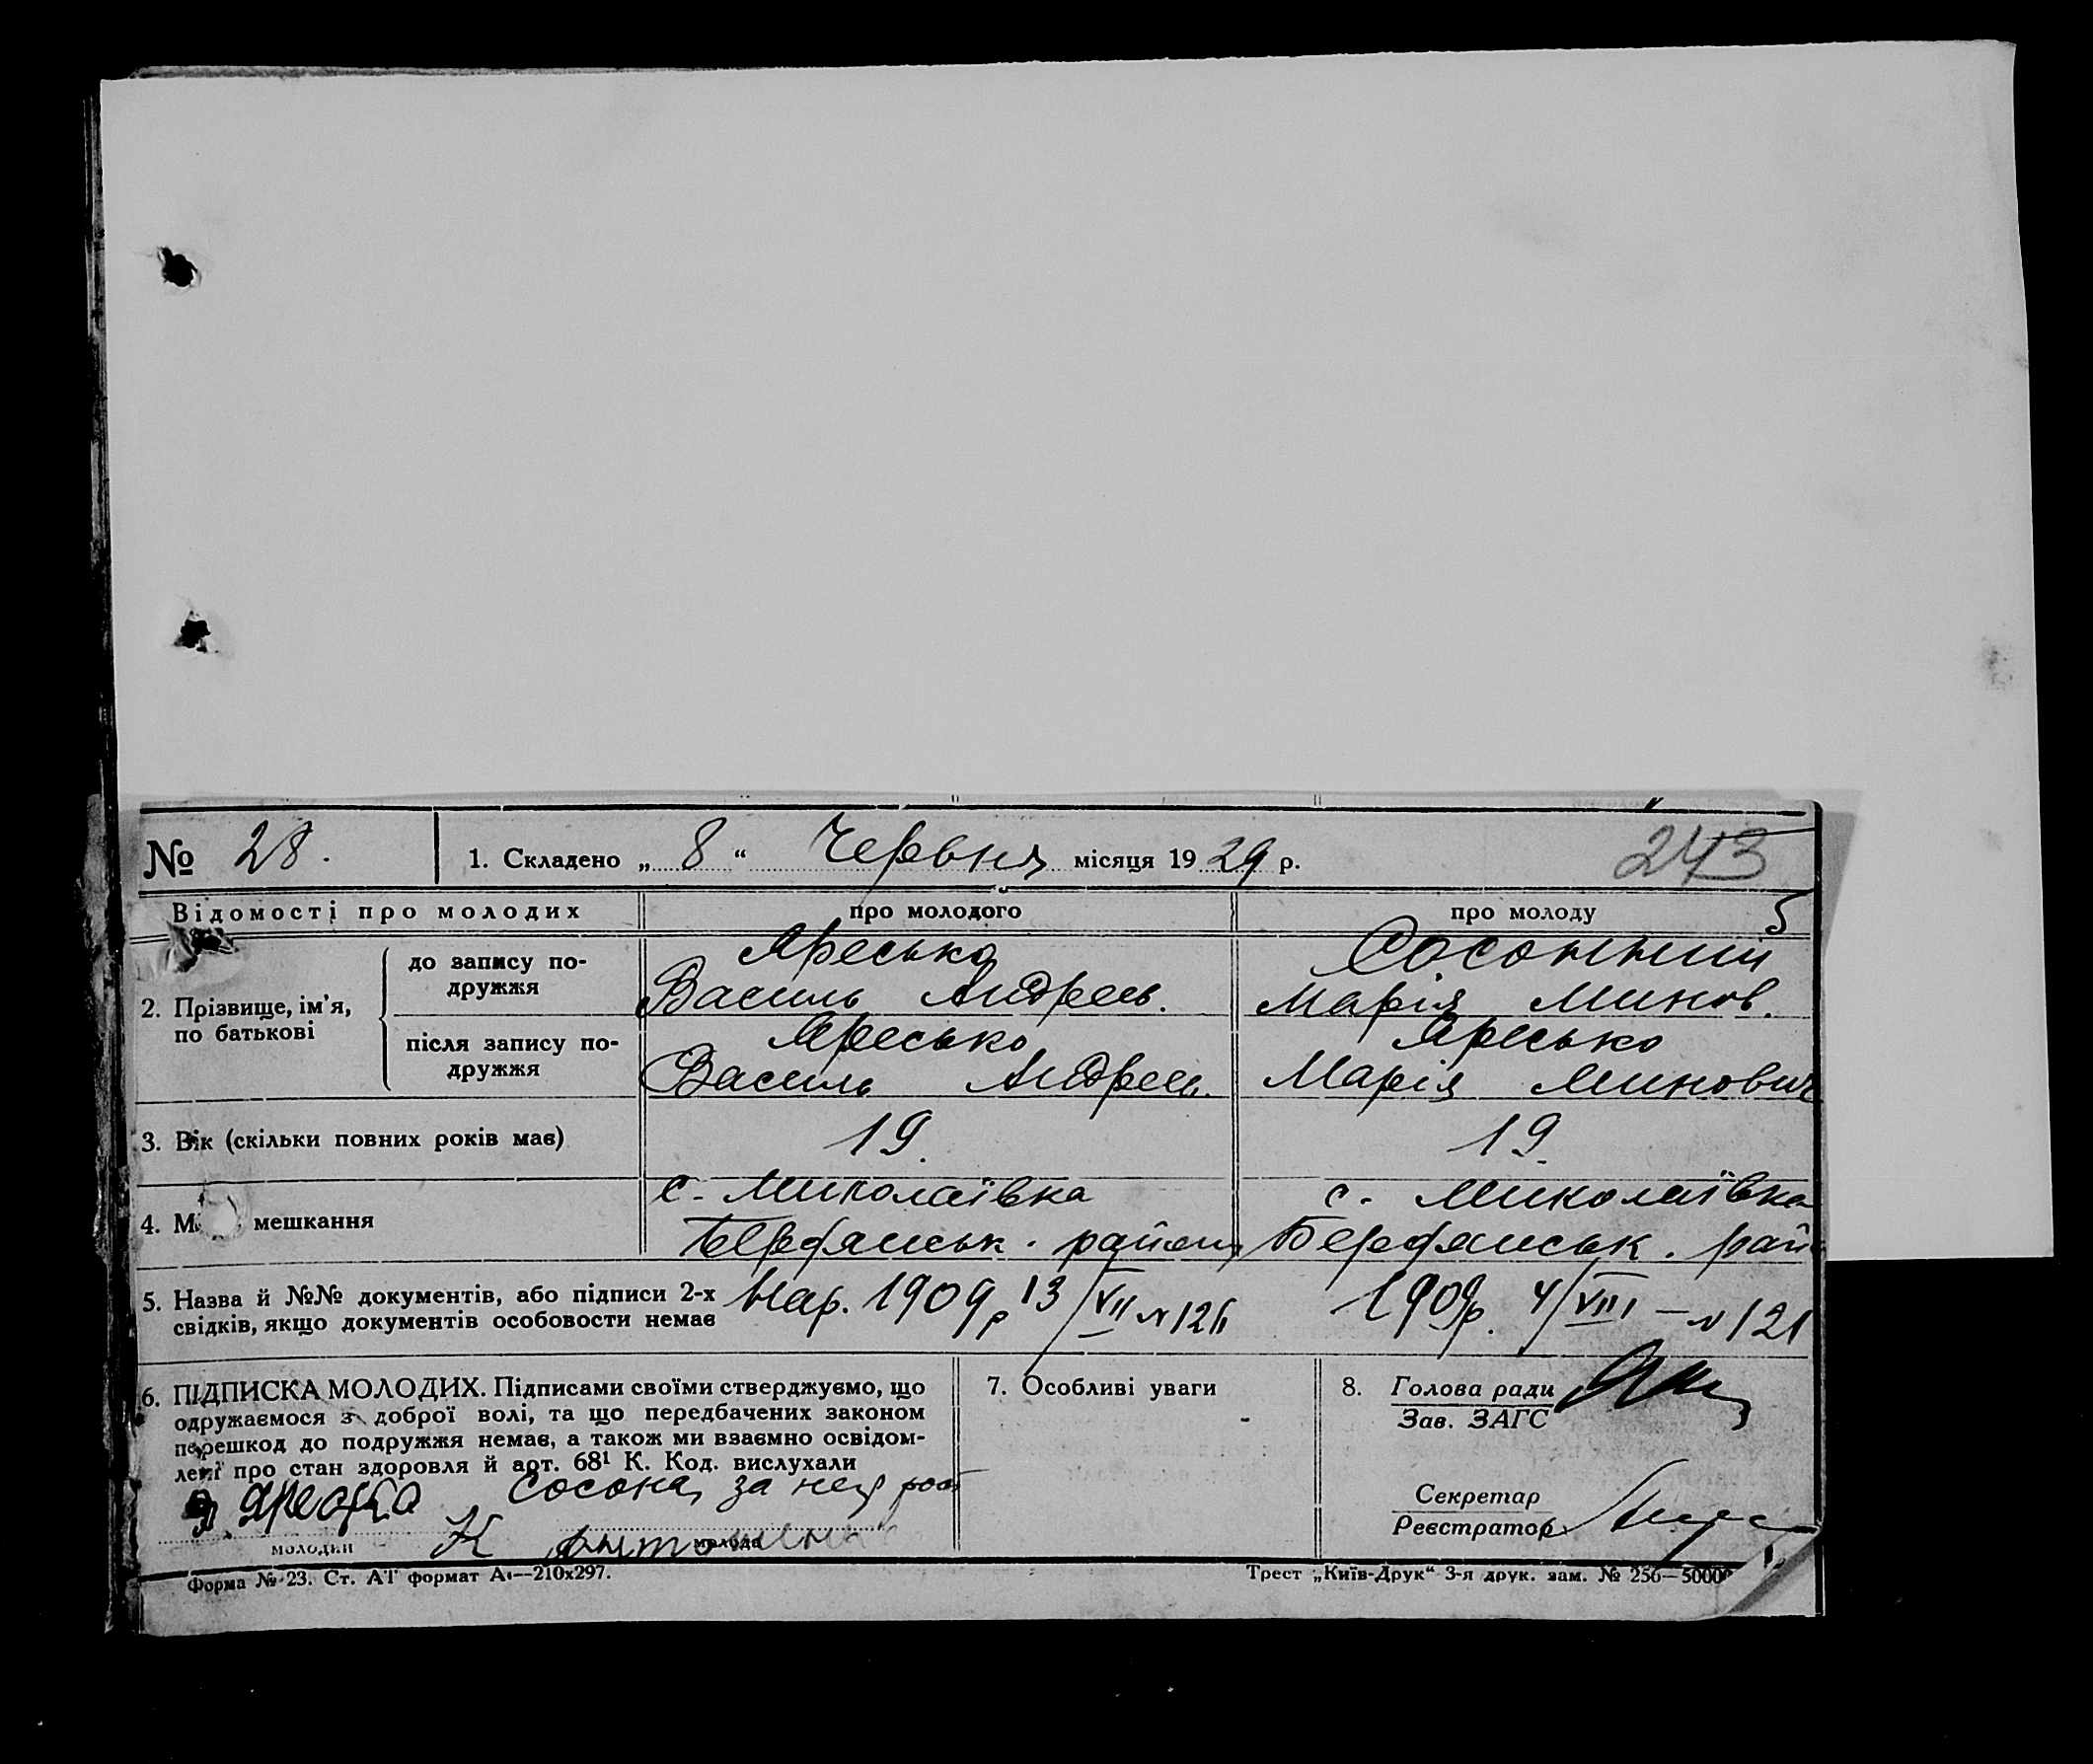 № 28. 1. Складено „ 8 “ Червня місяця 1929 р. 243
Відомості про молодих про молодого про молоду 5
2. Прізвище, ім'я, по батькові
до запису по-
дружжя
Яресько
Василь Андреев.
Сосонний
Марія Минов.
після запису по-
дружжя
Яресько
Василь Андреев.
Яресько
Марія Минович
3. Вік (скільки повних років має) 19. 19.
4. М мешкання
с. Миколаївка
Бердянськ. району
с. Миколаївка
Бердянськ. рай
5. Назва й №№ документів, або підписи 2-х
свідків, якщо документів особовости немає
Нар. 1909р 13/VII № 126
1909р. 4/VIII – № 121
6. ПІДПИСКА МОЛОДИХ. Підписами своїми стверджуємо, що
одружаємося з доброї волі, та що передбачених законом
перешкод до подружжя немає, а також ми взаємно освідом-
лені про стан здоровля й арт. 68¹ К. Код. вислухали
Яресько Сосона, за неї
молодий молода
7. Особливі уваги
-
8. Голова ради
Зав. ЗАГС
Секретар
Реєстратор
Форма № 23. Ст. АТ формат А₄—210х297.
Трест „Київ-Друк“ 3-я друк. зам. № 256—50000